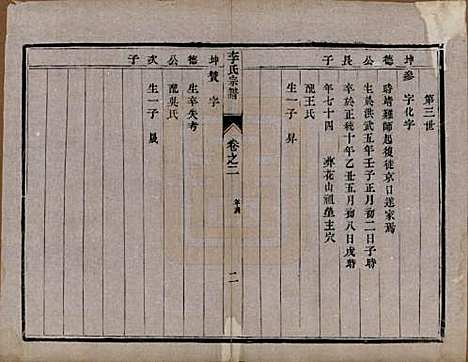 第三世
坤參 字化字
德 時堵難師起復徒京日遂家焉
公 生於洪武五年壬子正月初二日子時
長 卒於正統十年乙丑五月初八日戌時
子 年七十四 葬花山祖塋主穴
配王氏
生一子 昇
李氏宗譜
卷之二
二
坤贊 字
德 生卒失考
公 配吳氏
次 生一子 晟
子